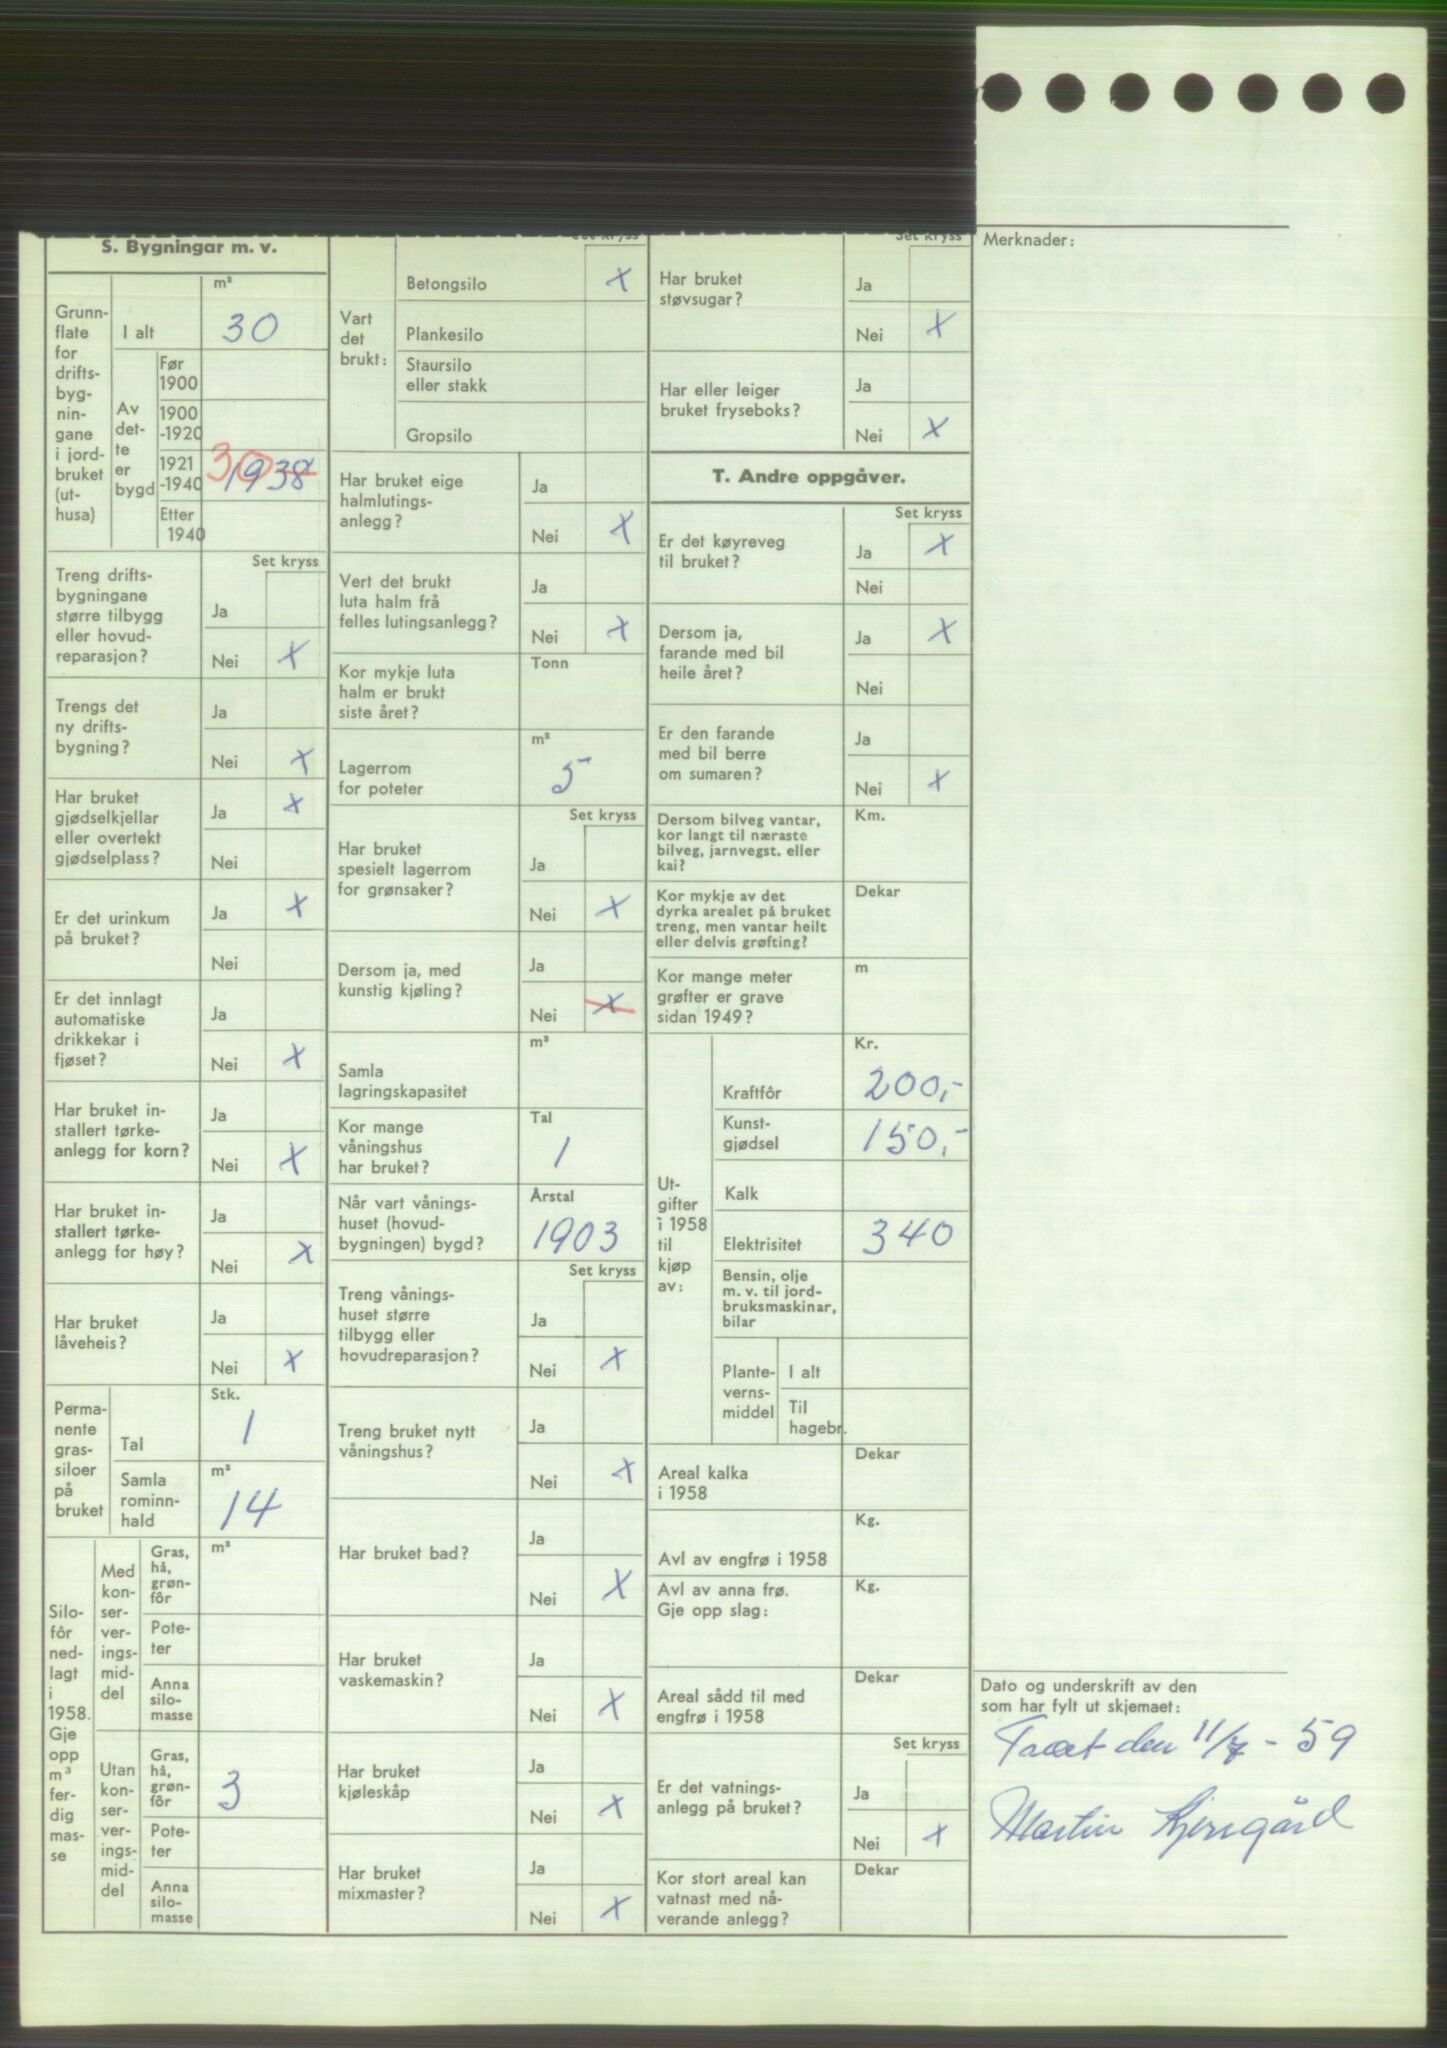 S. Bygningar m. v.
Grunn-
flate
for
drifts-
byg-
nin-
gane
i jord-
bruket
(ut-
husa)
m²
I alt
30
Av
det-
te
er
bygd
Før
1900
1900
-1920
1921
-1940
30
1938
Etter
1940
Set kryss
Treng drifts-
bygningane
større tilbygg
eller hovud-
reparasjon?
Ja
Nei x
Trengs det
ny drifts-
bygning?
Ja
Nei x
Har bruket
gjødselkjellar
eller overtekt
gjødselplass?
Ja x
Nei
Er det urinkum
på bruket?
Ja x
Nei
Er det innlagt
automatiske
drikkekar i
fjøset?
Ja
Nei x
Har bruket in-
stallert tørke-
anlegg for korn?
Ja
Nei x
Har bruket in-
stallert tørke-
anlegg for høy?
Ja
Nei x
Har bruket
låveheis?
Ja
Nei x
Perma-
nente
gras-
siloer
på
bruket
Stk.
Tal
1
Samla
rominn-
hald
m³
14
Silo-
fôr
ned-
lagt
i
1958.
Gje
opp
m³
fer-
dig
mas-
se
Med
kon-
ser-
ver-
ings-
mid-
del
Gras,
hå,
grøn-
fôr
m³
Pote-
ter
Anna
silo-
masse
Utan
kon-
ser-
ver-
ings-
mid-
del
Gras,
hå,
grøn-
fôr
3
Pote-
ter
Anna
silo-
masse
Set kryss
Vart
det
brukt:
Betongsilo x
Plankesilo
Staursilo
eller stakk
Gropsilo
Har bruket eige
halmlutings-
anlegg?
Ja
Nei x
Vert det brukt
luta halm frå
felles lutingsanlegg?
Ja
Nei x
Kor mykje luta
halm er brukt
siste året?
Tonn
Lagerrom
for poteter
m²
5
Set kryss
Har bruket
spesielt lagerrom
for grønsaker?
Ja
Nei x
Dersom ja, med
kunstig kjøling?
Ja
Nei x
Samla
lagringskapasitet
m²
Kor mange
våningshus
har bruket?
Tal
1
Når vart vånings-
huset (hovud-
bygningen) bygd?
Årstal
1903
Set kryss
Treng vånings-
huset større
tilbygg eller
hovudreparasjon?
Ja
Nei x
Treng bruket nytt
våningshus?
Ja
Nei x
Har bruket bad?
Ja
Nei x
Har bruket
vaskemaskin?
Ja
Nei x
Har bruket
kjøleskåp
Ja
Nei x
Har bruket
mixmaster?
Ja
Nei x
Set kryss
Har bruket
støvsugar?
Ja
Nei x
Har eller leiger
bruket fryseboks?
Ja
Nei x
T. Andre oppgåver.
Set kryss
Er det køyreveg
til bruket?
Ja x
Nei
Dersom ja,
farande med bil
heile året?
Ja x
Nei
Er den farande
med bil berre
om sumaren?
Ja
Nei x
Dersom bilveg vantar,
kor langt til næraste
bilveg, jarnvegst. eller
kai?
Km.
Kor mykje av det
dyrka arealet på bruket
treng, men vantar heilt
eller delvis grøfting?
Dekar
Kor mange meter
grøfter er grave
sidan 1949?
m
Ut-
gifter
i 1958
til
kjøp
av:
Kr.
Kraftfôr
200,-
Kunst-
gjødsel
150,-
Kalk
Elektrisitet
340
Bensin, olje
m. v. til jord-
bruksmaskinar,
bilar
Plante-
verns-
middel
I alt
Til
hagebr.
Areal kalka
i 1958
Dekar
Avl av engfrø i 1958
Kg.
Avl av anna frø.
Gje opp slag:
Kg.
Areal sådd til med
engfrø i 1958
Dekar
Set kryss
Er det vatnings-
anlegg på bruket?
Ja
Nei x
Kor stort areal kan
vatnast med nå-
verande anlegg?
Dekar
Merknader:
Dato og underskrift av den
som har fylt ut skjemaet:
den 11/7 - 59
Martin